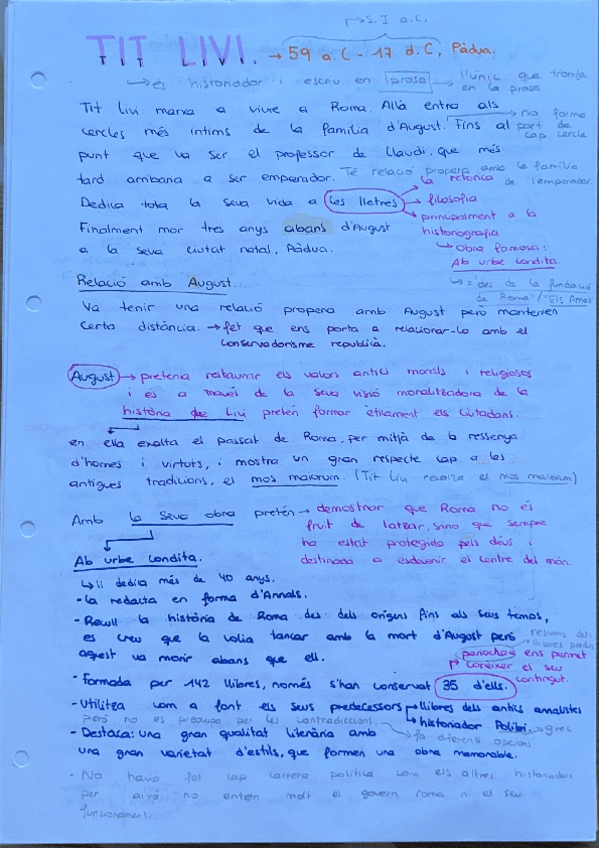 S. I a.C.
TIT LIVI. → 59 a.C - 17 d.C, Pàdua.
↳ és historiador i escriu en prosa → l'únic que treballa en la prosa
Tit Livi marxa a viure a Roma. Allà entra als → no forma part de cap cercle
cercles més íntims de la família d'August. Fins al
punt que va ser el professor de Claudi, que més
tard arribaria a ser emperador. Té relació propera amb la família de l'emperador.
Dedica tota la seva vida a les lletres
→ la retòrica
→ filosofia
→ principalment a la historiografia
↳ Obra famosa:
Ab urbe condita.
↳ = des de la fundació de Roma / "Els Annals"
Finalment mor tres anys abans d'August
a la seva ciutat natal, Pàdua.
Relació amb August.
Va tenir una relació propera amb August però mantenien
certa distància. → fet que ens porta a relacionar-lo amb el
conservadorisme republicà.
August → pretenia restaurar els valors antics morals i religiosos
i és a través de la seva visió moralitzadora de la
història que Livi pretén formar èticament els ciutadans.
en ella exalta el passat de Roma, per mitjà de la ressenya
d'homes i virtuts, i mostra un gran respecte cap a les
antigues tradicions, el mos maiorum. (Tit Livi mos maiorum)
Amb la seva obra pretén → demostrar que Roma no és
fruit de l'atzar, sino que sempre
ha estat protegida pels déus i
destinada a esdevenir el centre del món.
Ab urbe condita.
↳ li dedica més de 40 anys.
- la redacta en forma d'Annals.
- Recull la història de Roma des dels orígens fins als seus temps,
es creu que la volia tancar amb la mort d'August però
aquest va morir abans que ell.
resums dels llibres
períoches ens permet
conèixer el seu
contingut.
- formada per 142 llibres, només s'han conservat 35 d'ells.
- Utilitza com a font els seus predecessors → llibres dels antics analistes
↳ historiador Polibi. → grec
però no es preocupa per les contradiccions → fa diferents opcions
- Destaca: una gran qualitat literària amb
una gran varietat d'estils, que formen una obra memorable.
- No havia fet cap carrera política com els altres historiadors
per això no entén molt el govern romà ni el seu
funcionament.